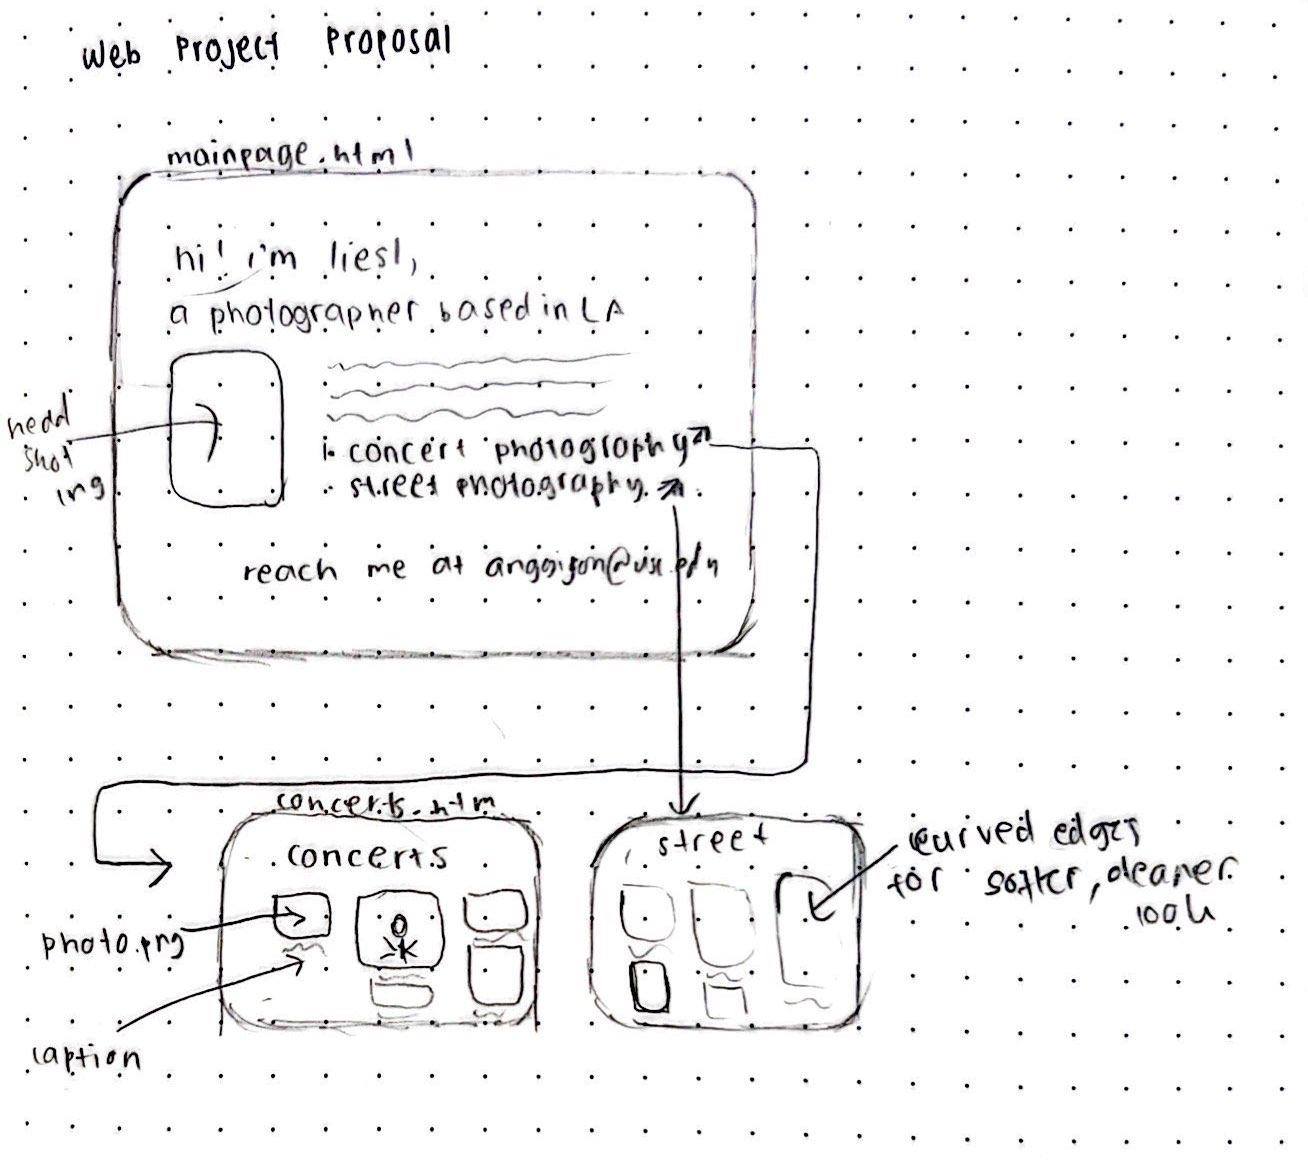 web project proposal
mainpage.html
hi! i'm liesl,
a photographer based in LA
head
shot
img
concert photography
street photography
reach me at
concerts.htm
concerts
photo.png
caption
street
curved edges
for softer, cleaner
look